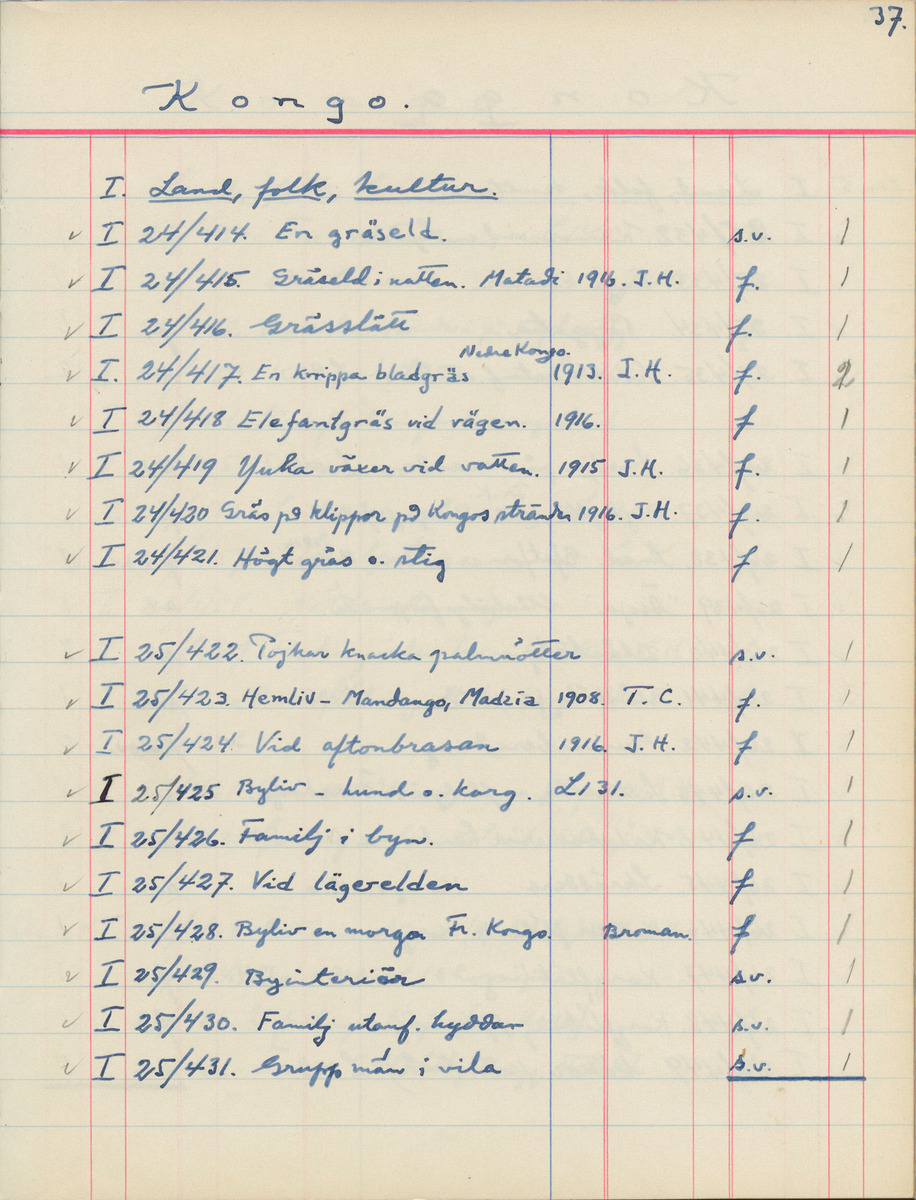 37.
Kongo.
I. Land, folk, kultur.
✓ I 24/414. En gräseld. s.v. 1
✓ I 24/415. Gräseld i natten. Matadi 1916. J.H. f. 1
✓ I 24/416. Grässlätt f. 1
Nedre Kongo.
✓ I. 24/417. En knippa bladgräs 1913. J.H. f. 2
✓ I 24/418 Elefantgräs vid vägen. 1916. f 1
✓ I 24/419 Yuka växer vid vatten. 1915 J.H. f. 1
✓ I 24/420 Gräs på klippor på Kongos stränder 1916. J.H. f. 1
✓ I 24/421. Högt gräs o. stig f 1
✓ I 25/422. Pojkar knacka palmnötter s.v. 1
✓ I 25/423. Hemliv - Mandango, Madzia 1908. T.C. f. 1
✓ I 25/424. Vid aftonbrasan 1916. J.H. f 1
✓ I 25/425 Byliv - hund o. korg. L131. s.v. 1
✓ I 25/426. Familj i byn. f 1
✓ I 25/427. Vid lägerelden f 1
✓ I 25/428. Byliv en morgo Fr. Kongo. Broman. f 1
✓ I 25/429. Byinteriör s.v. 1
✓ I 25/430. Familj utanf. hyddar s.v. 1
✓ I 25/431. Grupp män i vila s.v. 1